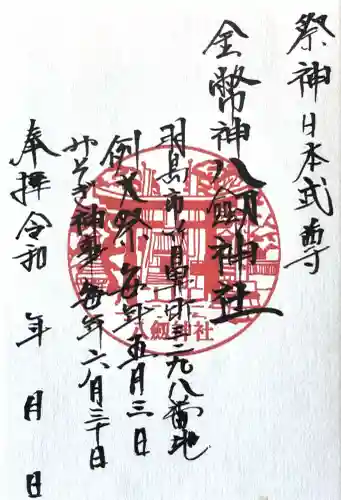 祭神日本武尊
金幣神八劔神社
羽島市正木町曲利二九八番地
例大祭毎年五月三日
みそぎ神事毎年六月三十日
奉拝令和 年 月 日
八劔神社